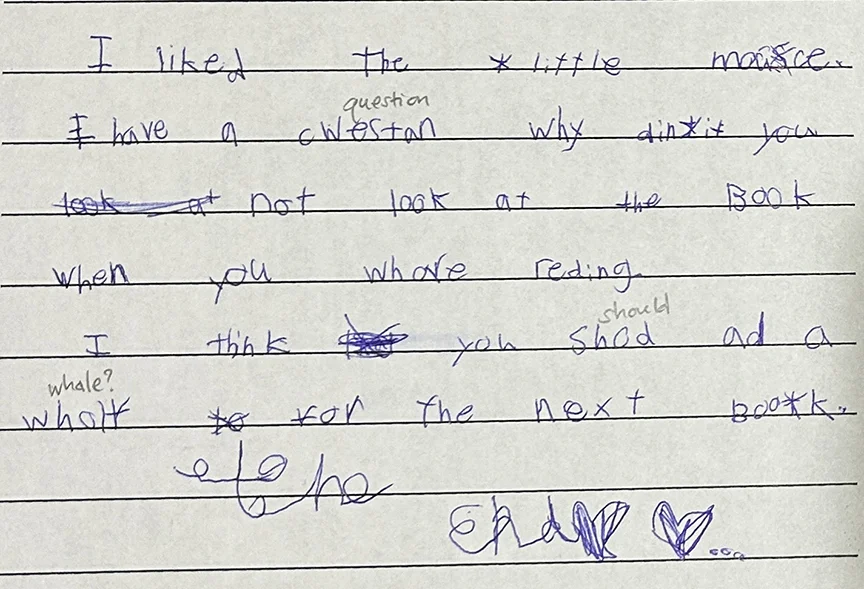 I liked the little mouice.
question
I have a cwestan why dinit you
look at not look at the Book
when you whare reding.
should
I think you shod ad a
whale?
wholt for the next Book.
the
end ...